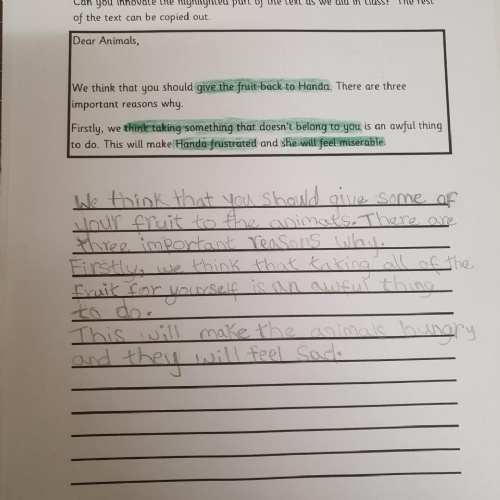 Can you innovate the highlighted part of the text as we did in class? The rest
of the text can be copied out.
Dear Animals,
We think that you should give the fruit back to Handa. There are three
important reasons why.
Firstly, we think taking something that doesn't belong to you is an awful thing
to do. This will make Handa frustrated and she will feel miserable.
We think that you should give some of
your fruit to the animals. There are
three important reasons why.
Firstly, we think that taking all of the
fruit for yourself is an awful thing
to do.
This will make the animals hungry
and they will feel sad.